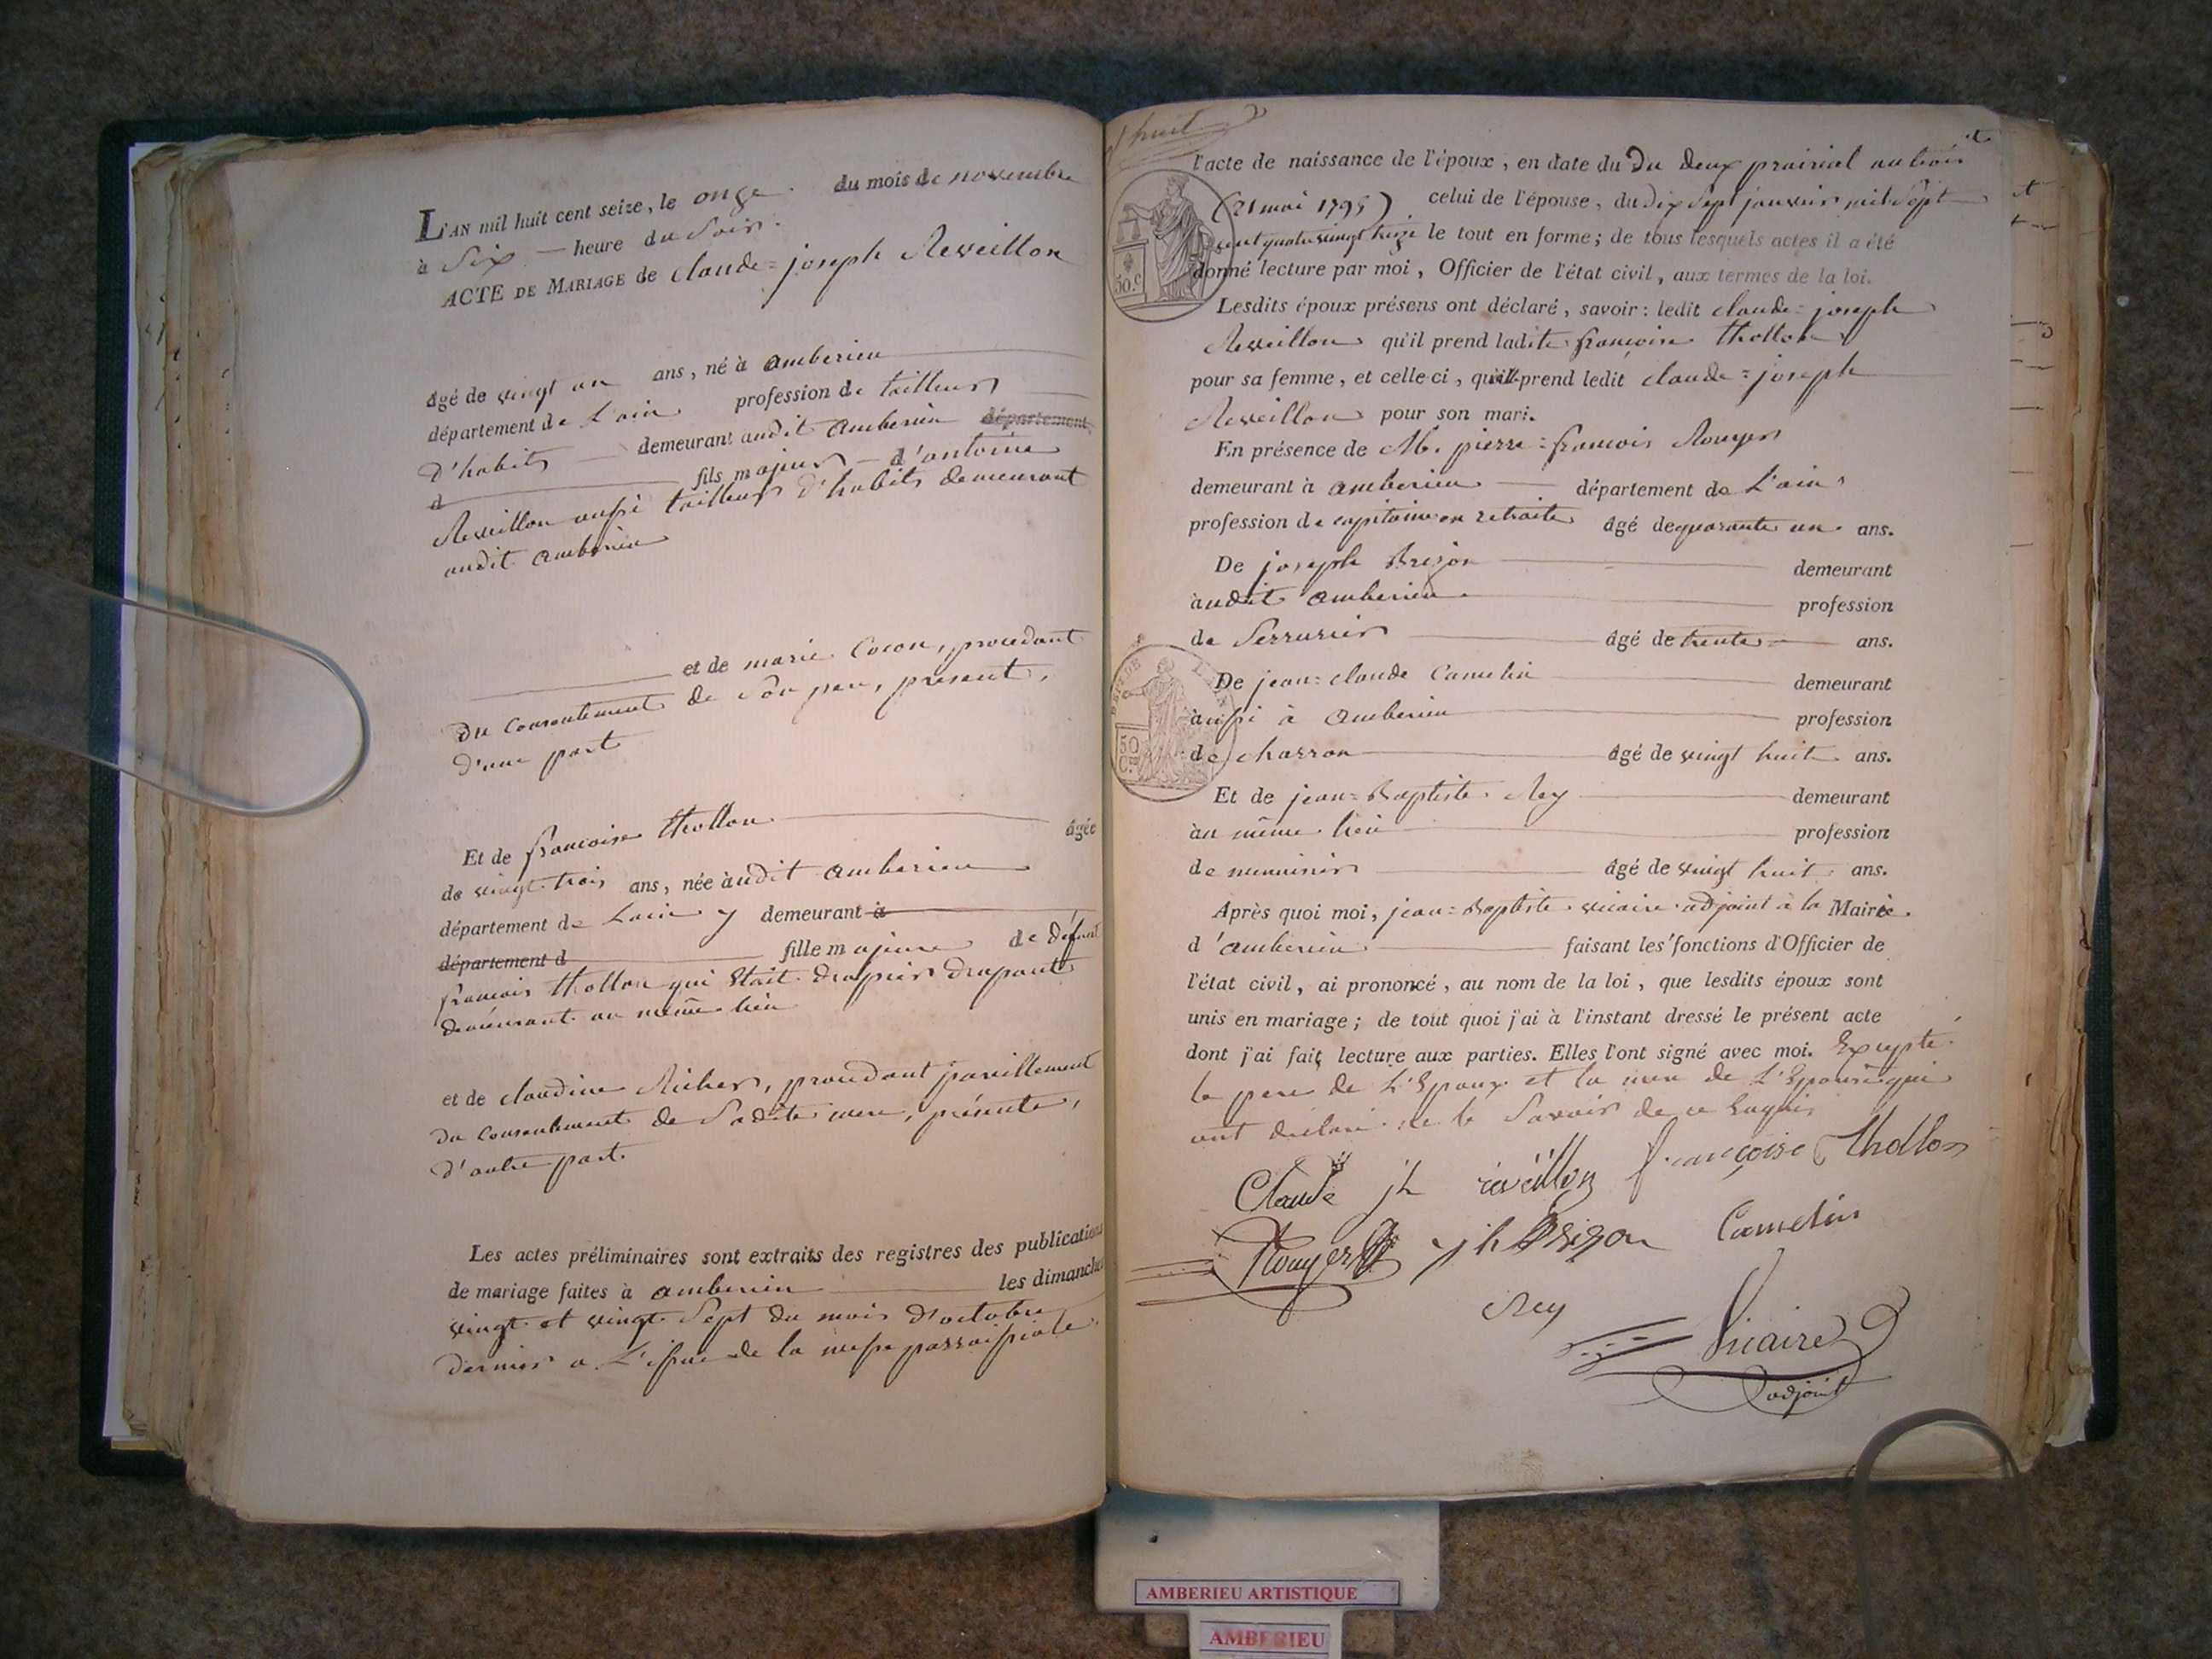 L'AN mil huit cent seize, le onze du mois de novembre
à Six — heure du Soir.
ACTE DE MARIAGE de Claude=joseph Reveillon
âgé de vingt un ans, né à amberieu
département de L'ain profession de tailleur
d'habits demeurant audit amberieu département
d fils majeur d'antoine
Reveillon aussi tailleur d'habits demeurant
audit amberieu
et de marie Cocon, procedant
du consentement de Son pere, présent,
d'une part
Et de françoise thollon âgée
de vingt trois ans, née àudit amberieu
département de Lain y demeurant à
département d fille majeure de défunt
françois thollon qui Etait drapier drapant
demeurant au même lieu
et de claudine Richer, procedant pareillement
du consentement de Sadite mere, présente,
d'autre part.
Les actes préliminaires sont extraits des registres des publications
de mariage faites à amberieu les dimanches
vingt et vingt Sept du mois d'octobre
dernier a L'issue de la messe parroissiale
huit
l'acte de naissance de l'époux, en date du Du deux prairial an trois
(21 mai 1795) celui de l'épouse, du dix Sept janvier mil Sept
cent quatrevingt treize le tout en forme; de tous lesquels actes il a été
donné lecture par moi, Officier de l'état civil, aux termes de la loi.
50.c
Lesdits époux présens ont déclaré, savoir: ledit claude=joseph
Reveillon qu'il prend ladite françoise thollon
pour sa femme, et celle ci, qu'elle prend ledit claude=joseph
Reveillon pour son mari.
En présence de M. pierre=françois Rouyer
demeurant à amberieu département de L'ain,
profession de capitaine en retraite âgé de quarante un ans.
De joseph Brizon demeurant
àudit amberieu profession
de Serrurier âgé de trente ans.
De jean=claude Camelin demeurant
aussi à amberieu profession
50 C.
de charron âgé de vingt huit ans.
Et de jean=Baptiste Rey demeurant
àu même lieu profession
de menuisier âgé de vingt huit ans.
Après quoi moi, jean=Baptiste vicaire adjoint à la Mairie
d'amberieu faisant les fonctions d'Officier de
l'état civil, ai prononcé, au nom de la loi, que lesdits époux sont
unis en mariage; de tout quoi j'ai à l'instant dressé le présent acte
dont j'ai fait lecture aux parties. Elles l'ont signé avec moi. Excepté
le pere de L'Epoux et la mere de L'Epouse qui
ont declaré ne le Savoir de ce Enquis
Claude jh révéillon françoise thollon
Rouyer jh Brizon Camelin
Rey
Vicaire
adjoint
AMBERIEU ARTISTIQUE
AMBERIEU